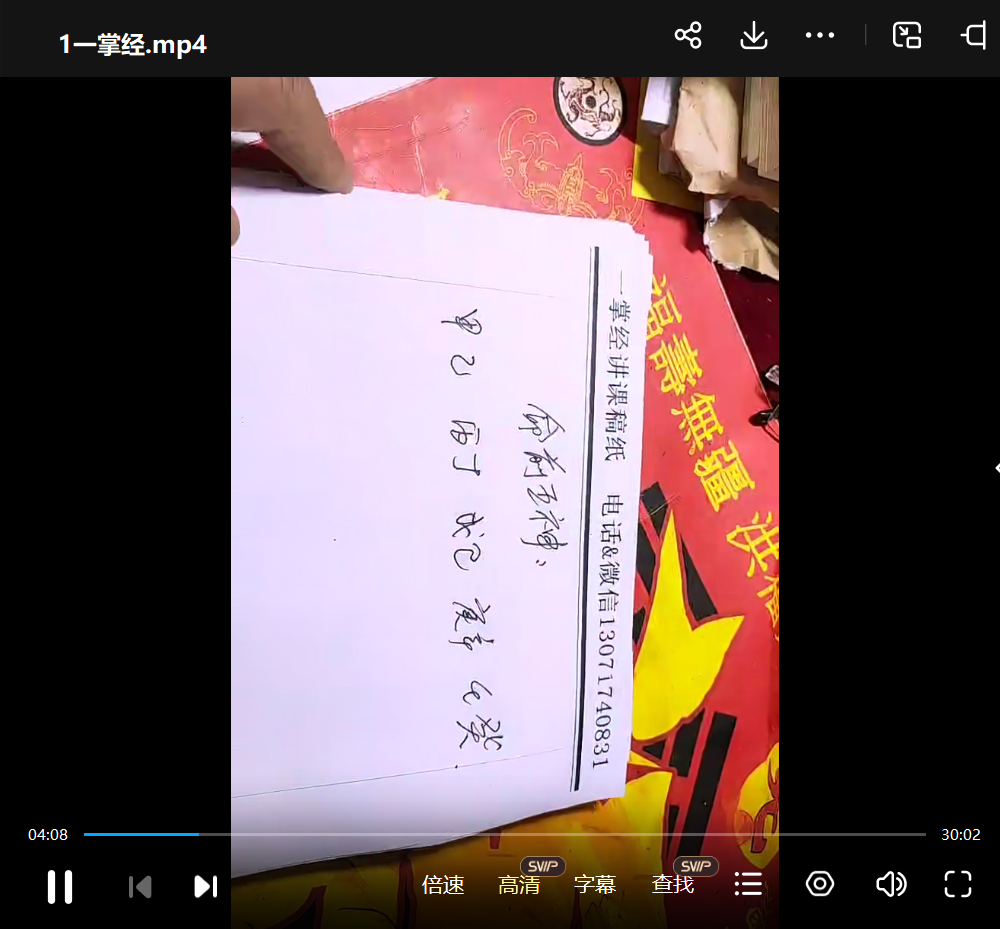 1一掌经.mp4
一掌经讲课稿纸 电话&微信13071740831
命前五神：
甲乙 丙丁 戊己 庚辛 壬癸
福壽無疆
洪福
04:08
30:02
倍速
高清
SVIP
字幕
查找
SVIP